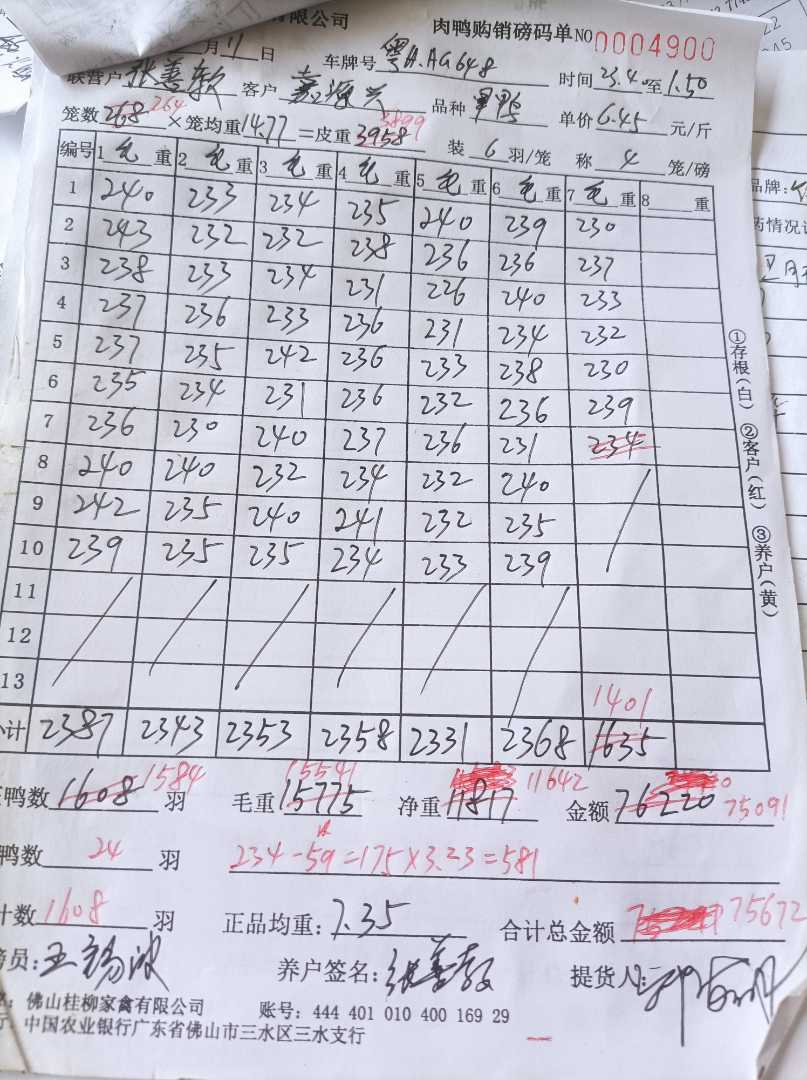 有限公司 肉鸭购销磅码单NO 0004900
月 11 日 车牌号 粤A.AG648 时间 23.40 至 1.50
联营户 张善款 客户 嘉源兴 品种 鸭 单价 6.45 元/斤
笼数 268 264 ×笼均重 14.77 =皮重 3958 3899 装 6 羽/笼 称 4 笼/磅
编号 1 毛 重 2 毛 重 3 毛 重 4 毛 重 5 毛 重 6 毛 重 7 毛 重 8 重
1 240 233 234 235 240 239 230
2 243 232 232 238 236 236 237
3 238 233 234 231 226 240 233
4 237 236 233 236 231 234 232
5 237 235 242 236 233 238 230
6 235 234 231 236 232 236 239
7 236 230 240 237 236 231 234
8 240 240 232 234 232 240
9 242 235 240 241 232 235
10 239 235 235 234 233 239
11
12
13 1401
小计 2387 2343 2353 2358 2331 2368 1635
鸭数 1608 1584 羽 毛重 15775 15541 净重 11817 11642 金额 76220 75091
鸭数 24 羽 234-59=175×3.23=581
计数 1608 羽 正品均重: 7.35 合计总金额 75672
磅员: 王锡波 养户签名: 张善款 提货人:
佛山桂柳家禽有限公司 账号: 444 401 010 400 169 29
中国农业银行广东省佛山市三水区三水支行
①存根(白) ②客户(红) ③养户(黄)
品牌:
药情况